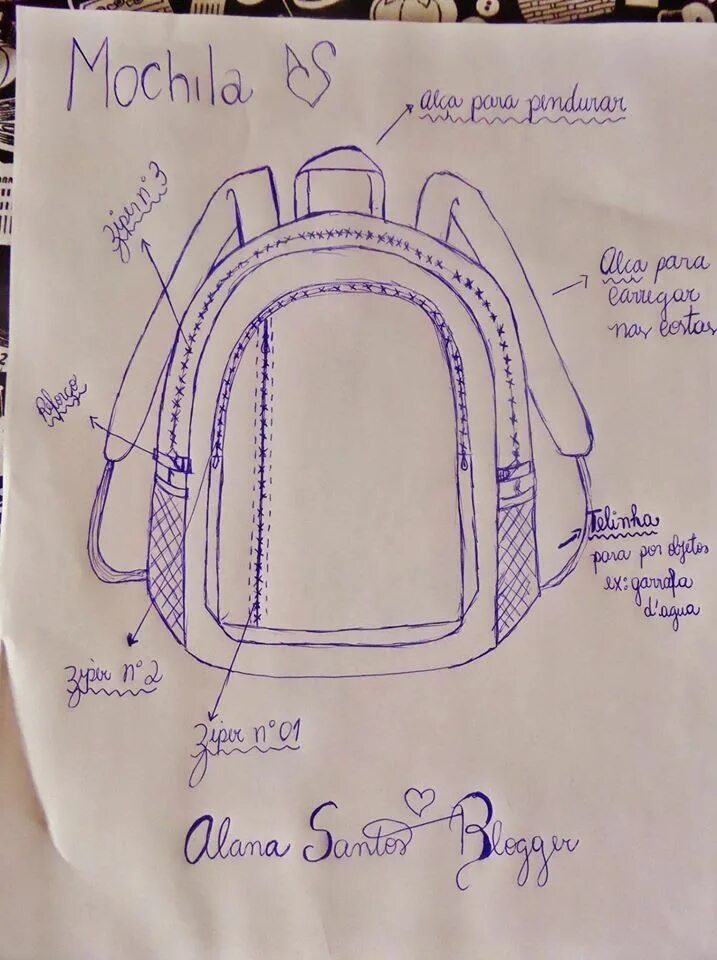 Mochila AS
alça para pendurar
ziper n° 3
Alça para
carregar
nas costas
Reforço
Telinha
para por objetos
ex: garrafa
d'agua
ziper n° 2
ziper n° 01
Alana Santos Blogger